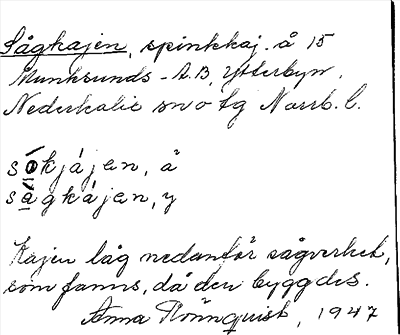 Sågkajen, spinkkaj. å 15
Munksunds - A.B, Ytterbyn,
Nederkalix sn o tg Norrb. l.
sókjájen, ä
ságkájen, y
Kajen låg nedanför sågverket,
som fanns, då den byggdes.
Anna Rönnquist, 1947